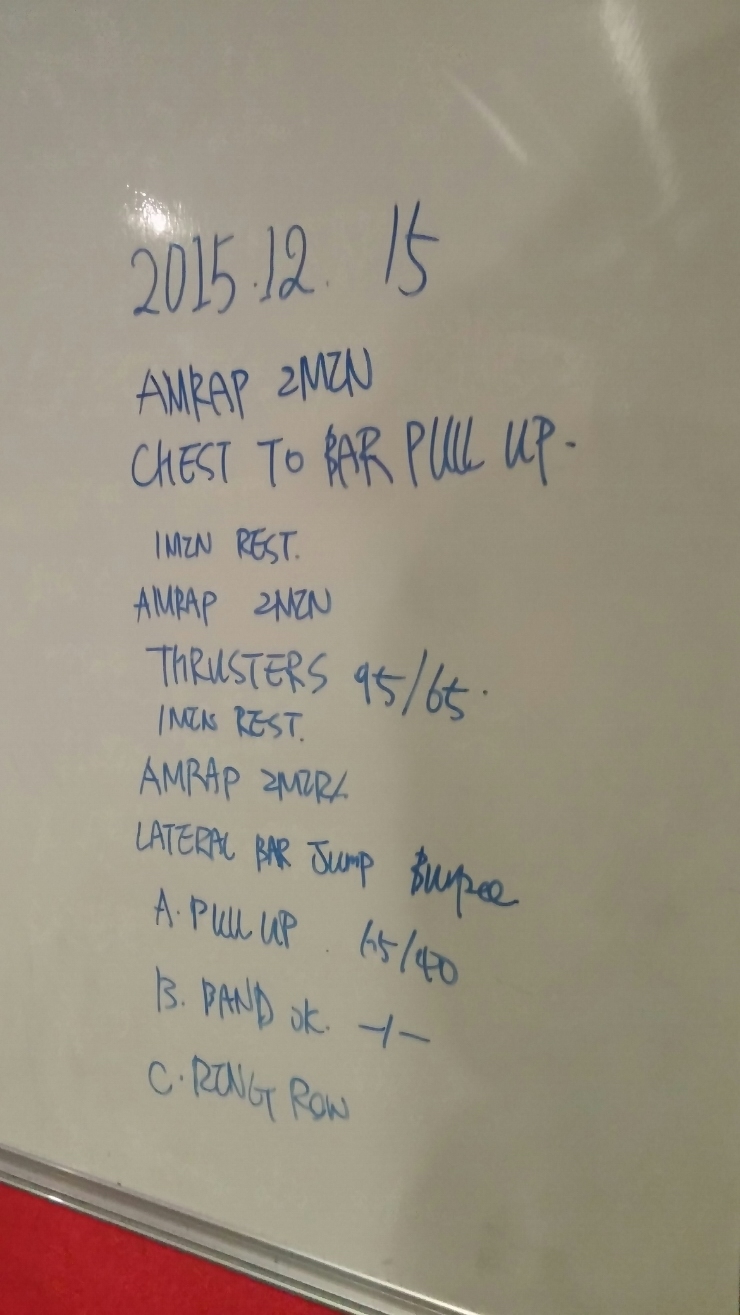 2015.12. 15
AMRAP 2MIN
CHEST TO BAR PULL UP.
1MIN REST.
AMRAP 2MIN
THRUSTERS 95/65.
1MIN REST.
AMRAP 2MIN
LATERAL BAR JUMP Burpee
A. PULL UP. 65/40
B. BAND OK. -/-
C. RING ROW